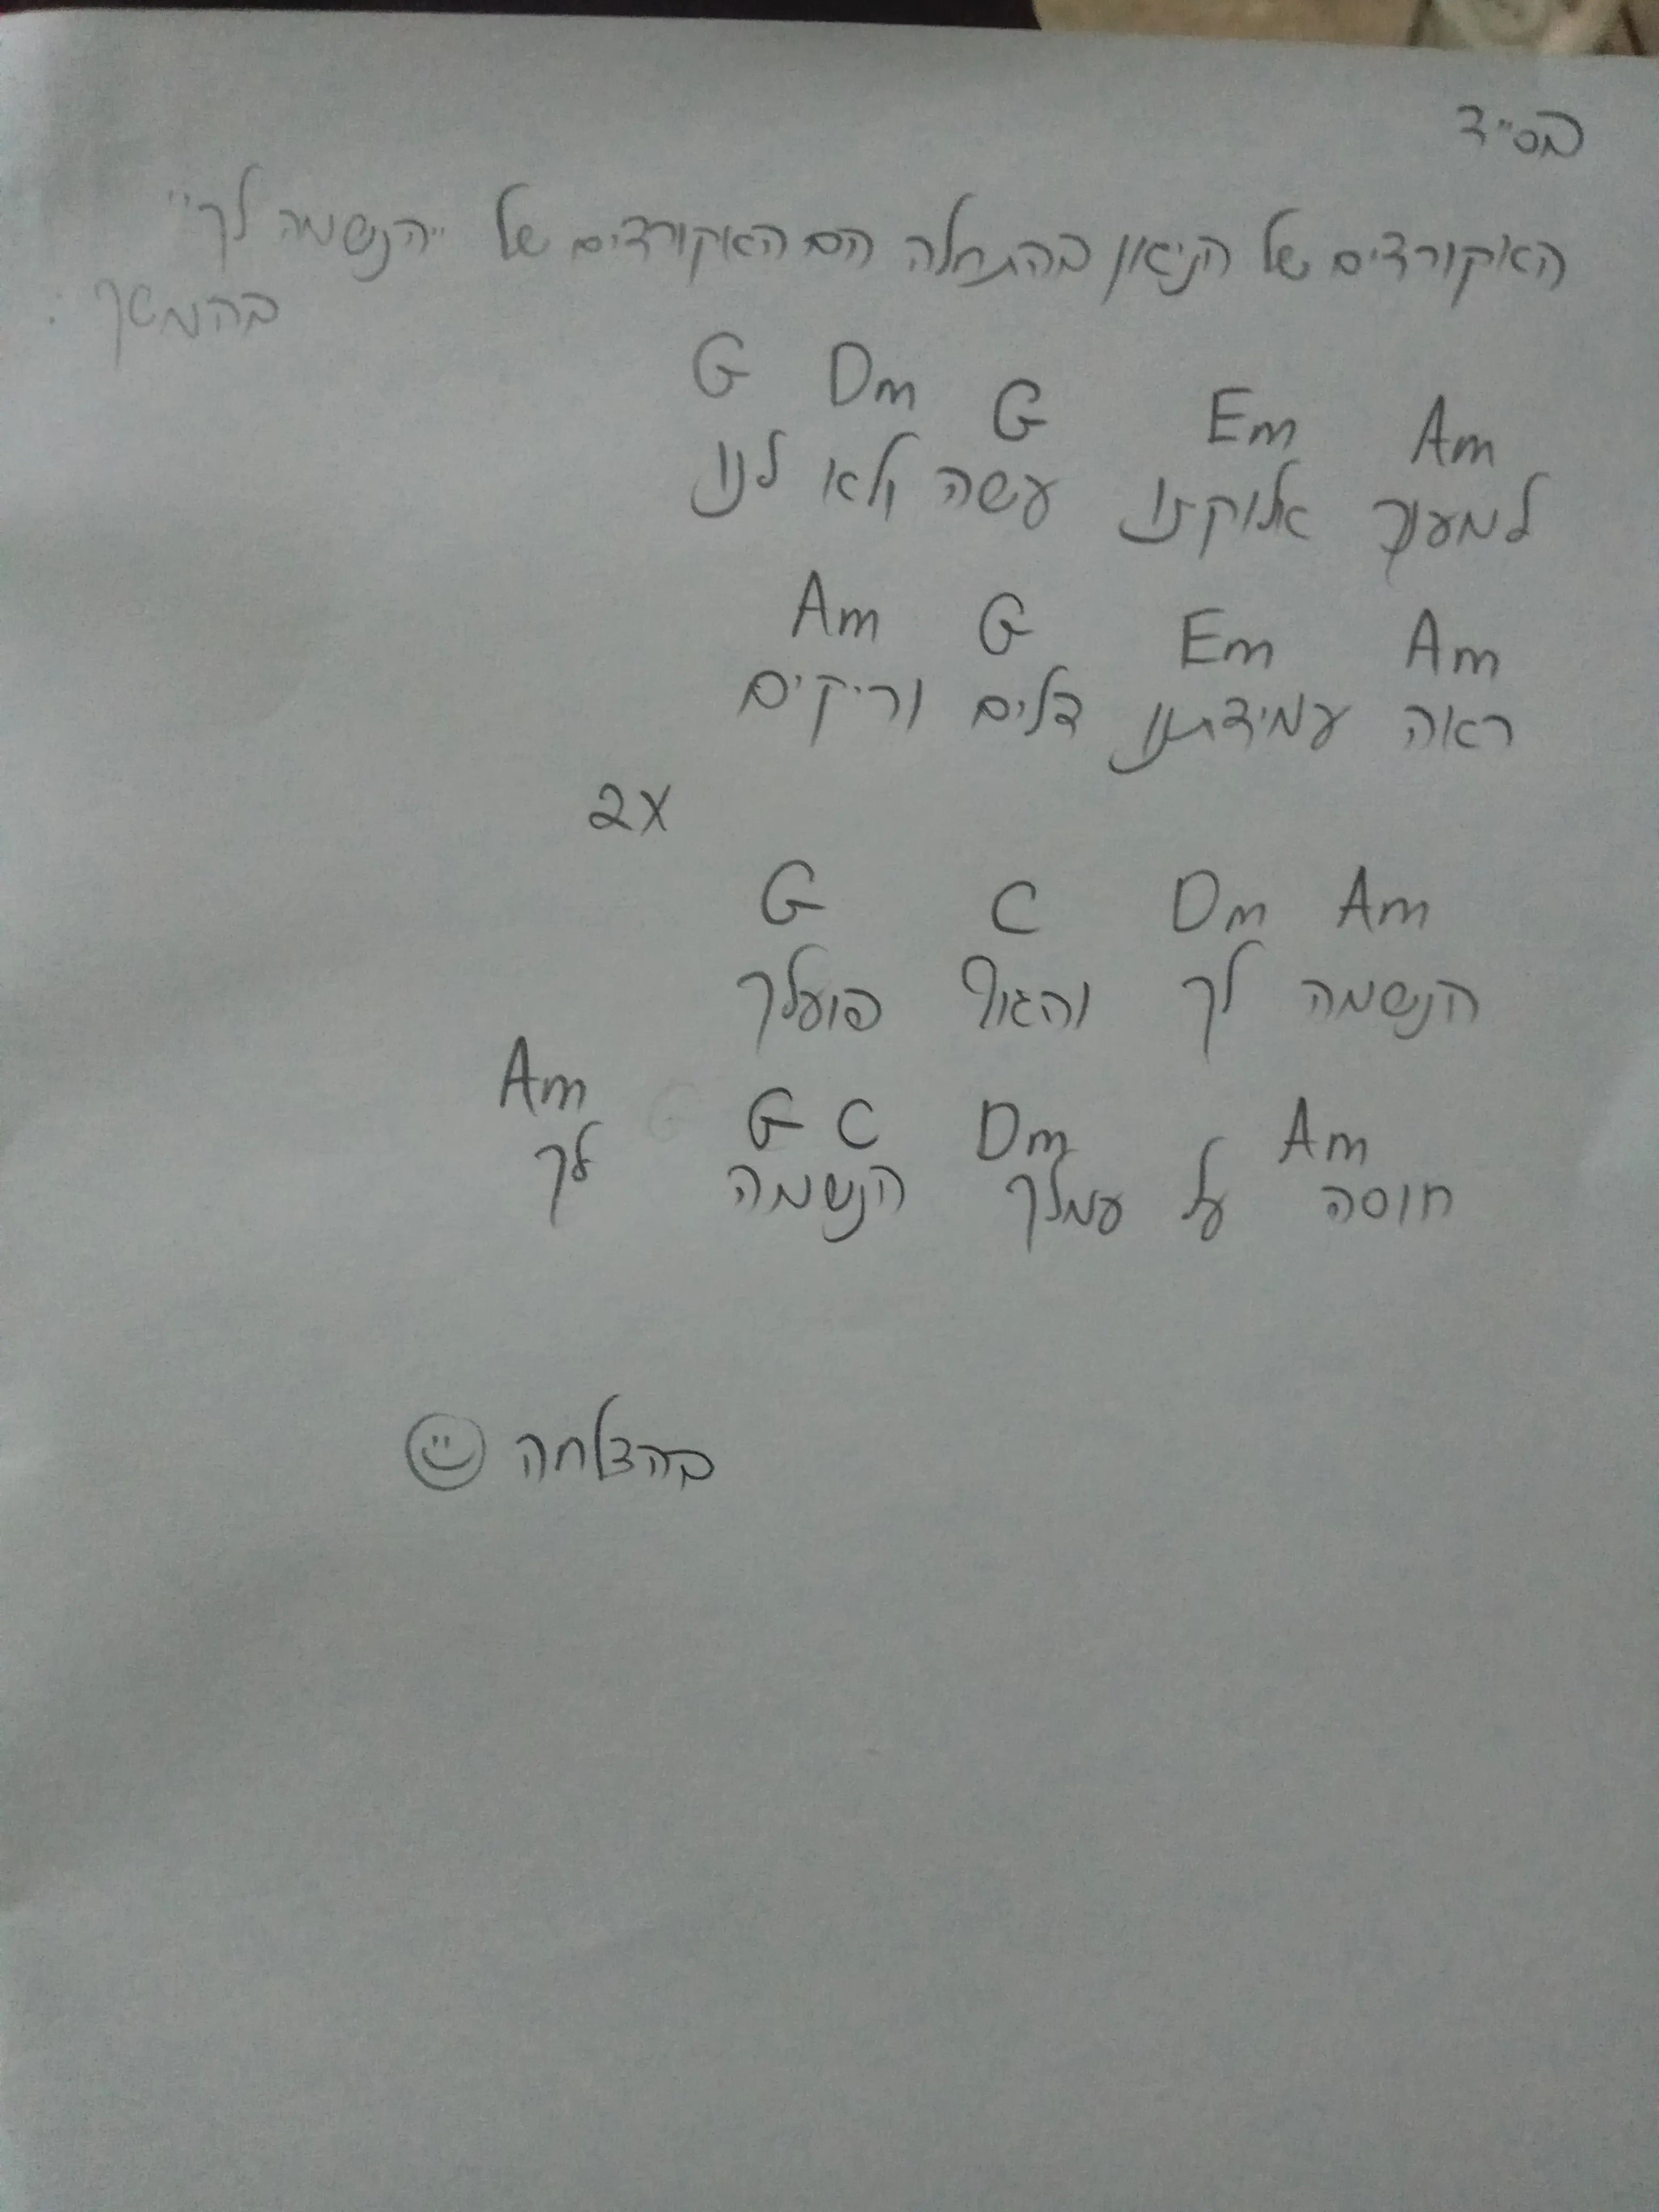 בס"ד
האקורדים של הניגון בהתחלה הם האקורדים של "הנשמה לך"
בהמשך :
G Dm G Em Am
למענך אלוקינו עשה ולא לנו
Am G Em Am
ראה עמידתנו דלים וריקים
2X
G C Dm Am
הנשמה לך והגוף פועלך
Am G C Dm Am
חוסה על עמלך הנשמה לך
בהצלחה